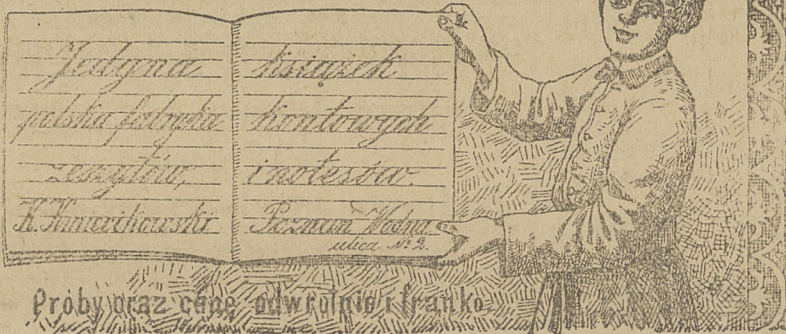 Jedyna
polska fabryka
zeszytów,
K. Kmiecikowski
książek
kontowych
i notesów.
Poznań Wodna
ulica № 2.
Próby oraz cenę odwrotnie i franko.